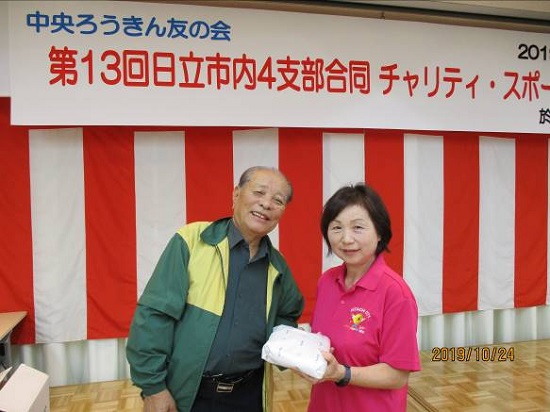 中央ろうきん友の会
201
第13回日立市内4支部合同 チャリティ・スポー
於
2019/10/24